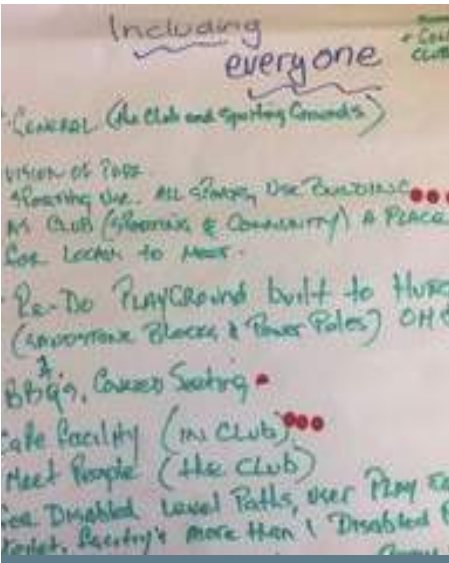 Including
everyone
CLUB
GENERAL (the Club and Sporting Grounds)
VISION OF
Sporting Use. ALL Use BUILDING
AS CLUB (SPORTING & COMMUNITY) A PLACE
FOR LOCALS to MEET.
Re-Do PLAYGROUND built to
(SANDSTONE BLOCKS & Power Poles)
BBQ's, Covered Seating
Cafe Facility (IN CLUB)
Meet People (the CLUB)
FOR Disabled Level Paths, User PLAY
Toilet, facility's more than 1 Disabled